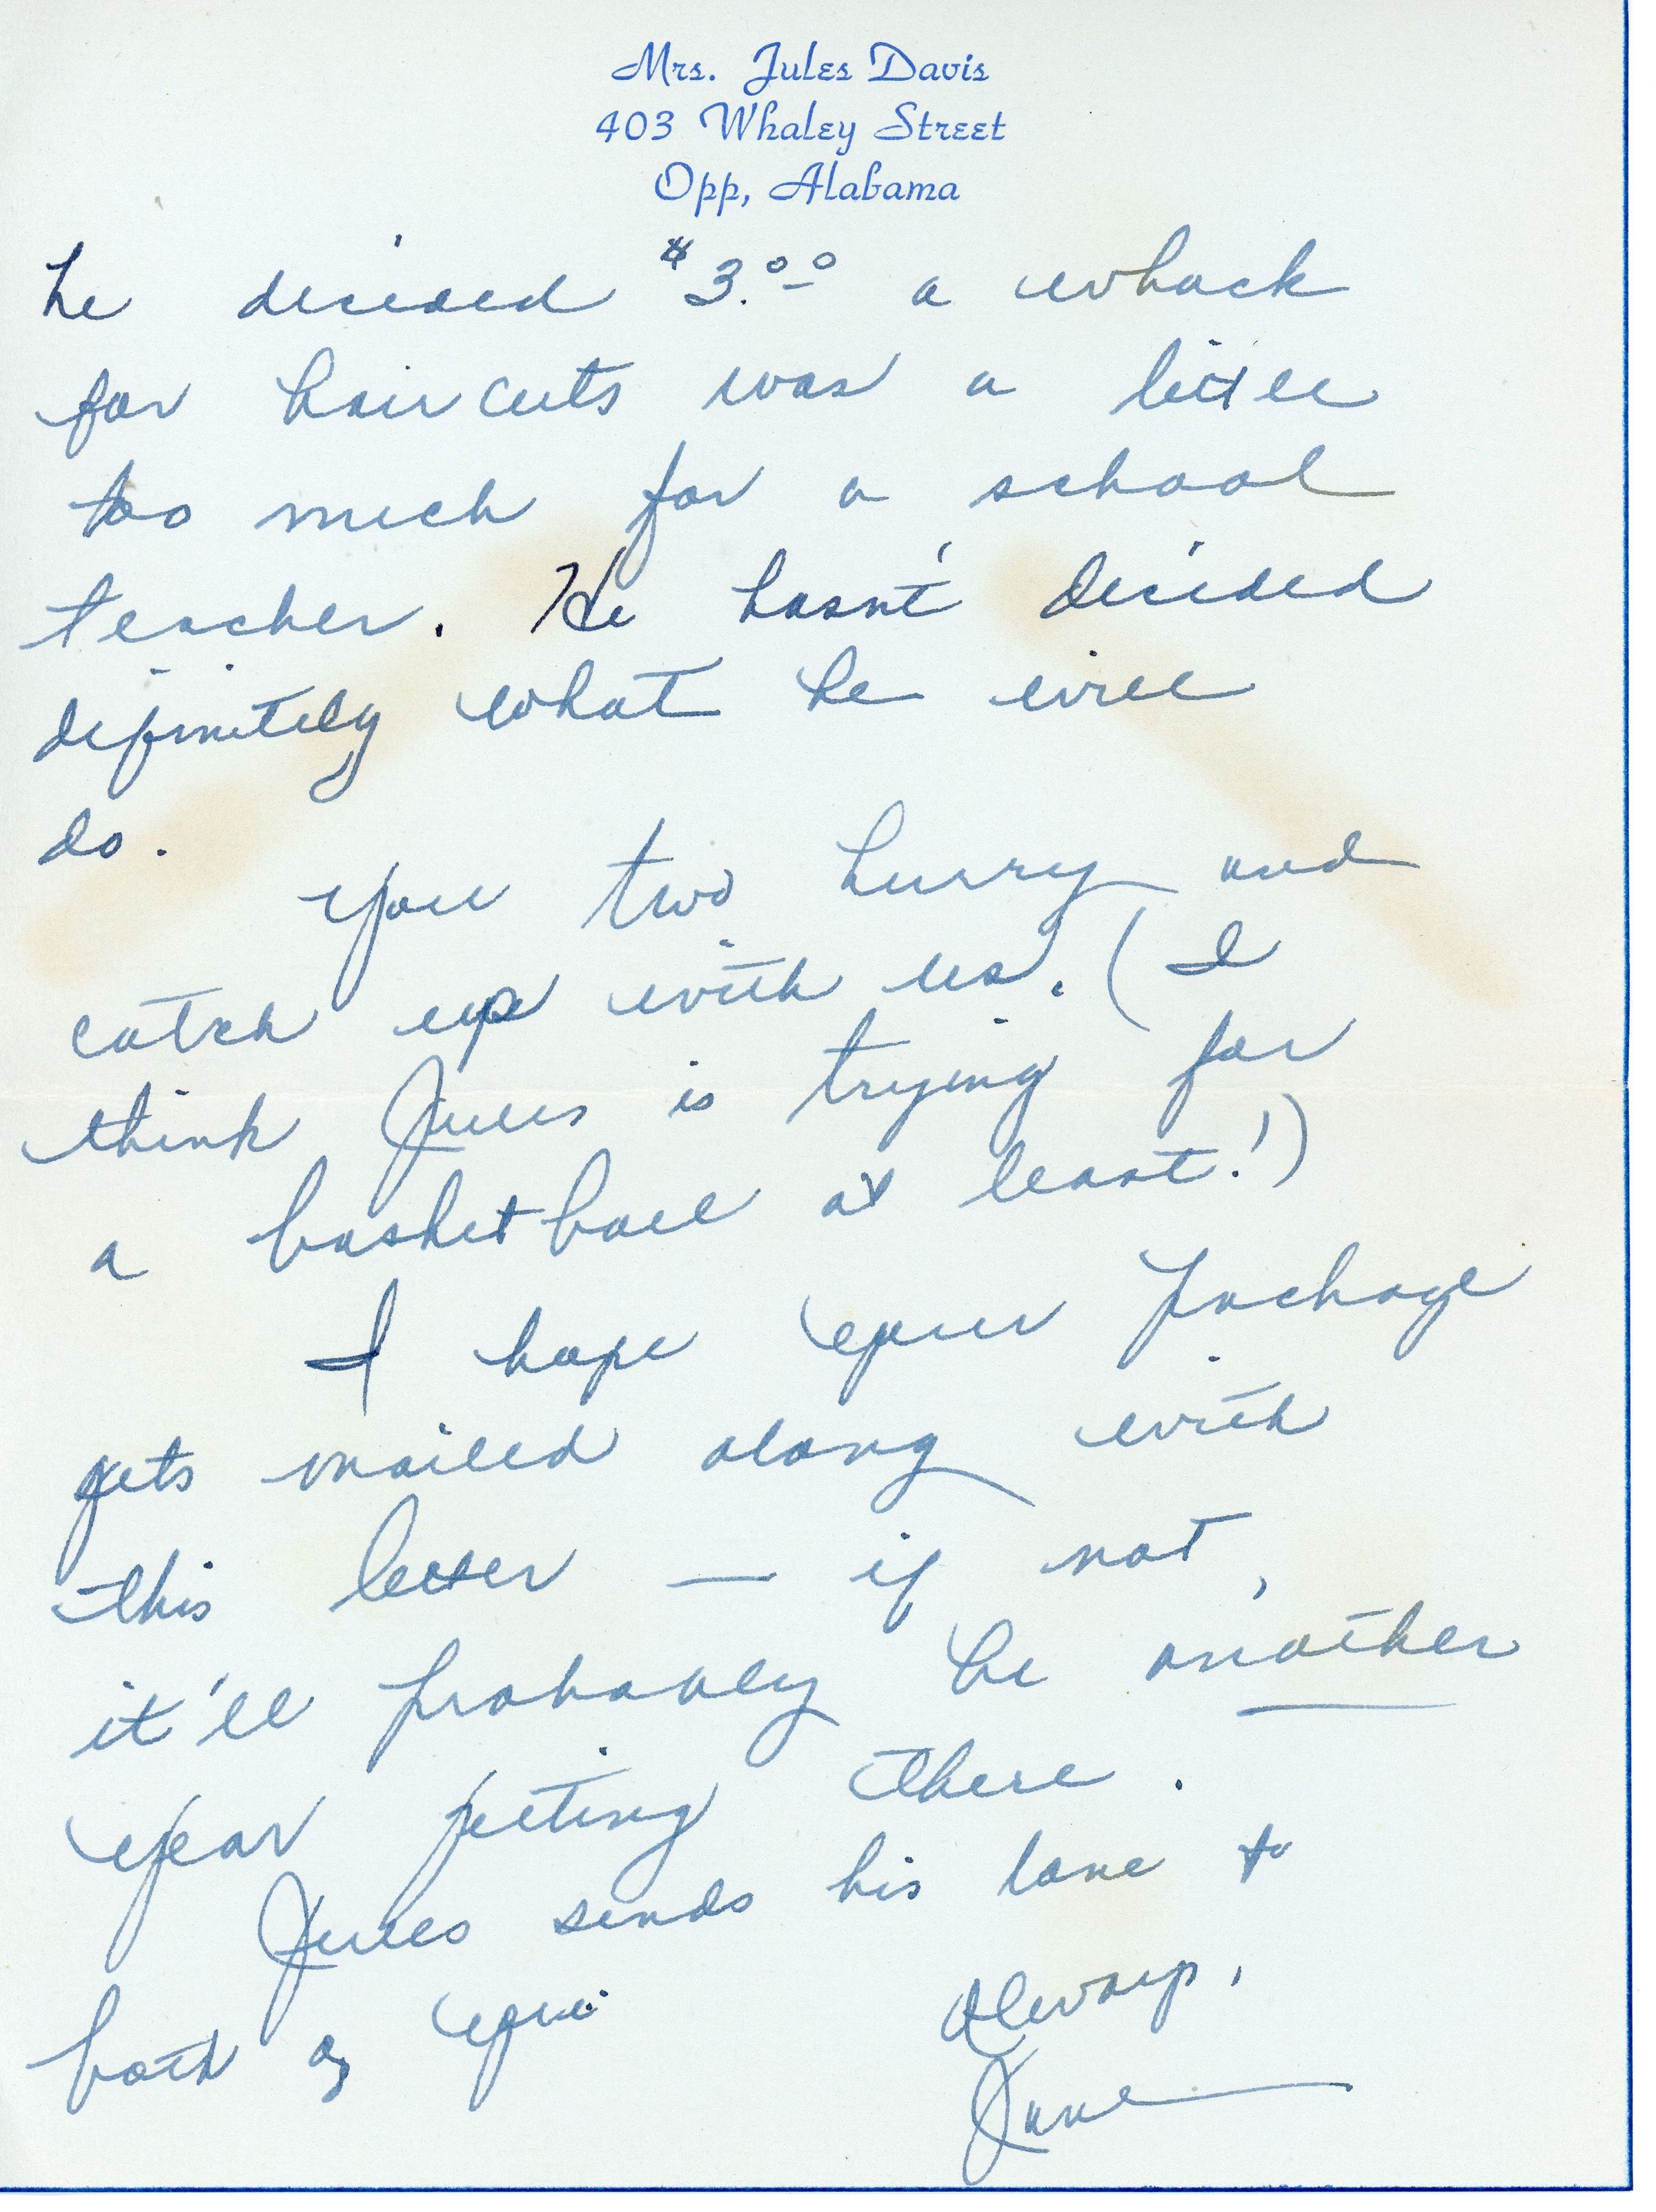 Mrs. Jules Davis
403 Whaley Street
Opp, Alabama
he decided $3.00 a whack
for haircuts was a little
too much for a school
teacher. He hasn't decided
definitely what he will
do.
You two hurry and
catch up with us. (I
think Jules is trying for
a basketball at least!)
I hope your package
gets mailed along with
this letter — if not,
it'll probably be another
year getting there.
Jules sends his love to
both of you.
Always,
Jane